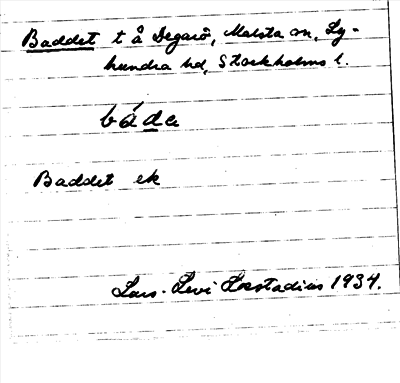 Baddet t å Degarö, Malsta sn, Ly-
hundra hd, Stockholms l.
bá de
Baddet ek
Lars-Levi Læstadius 1934.